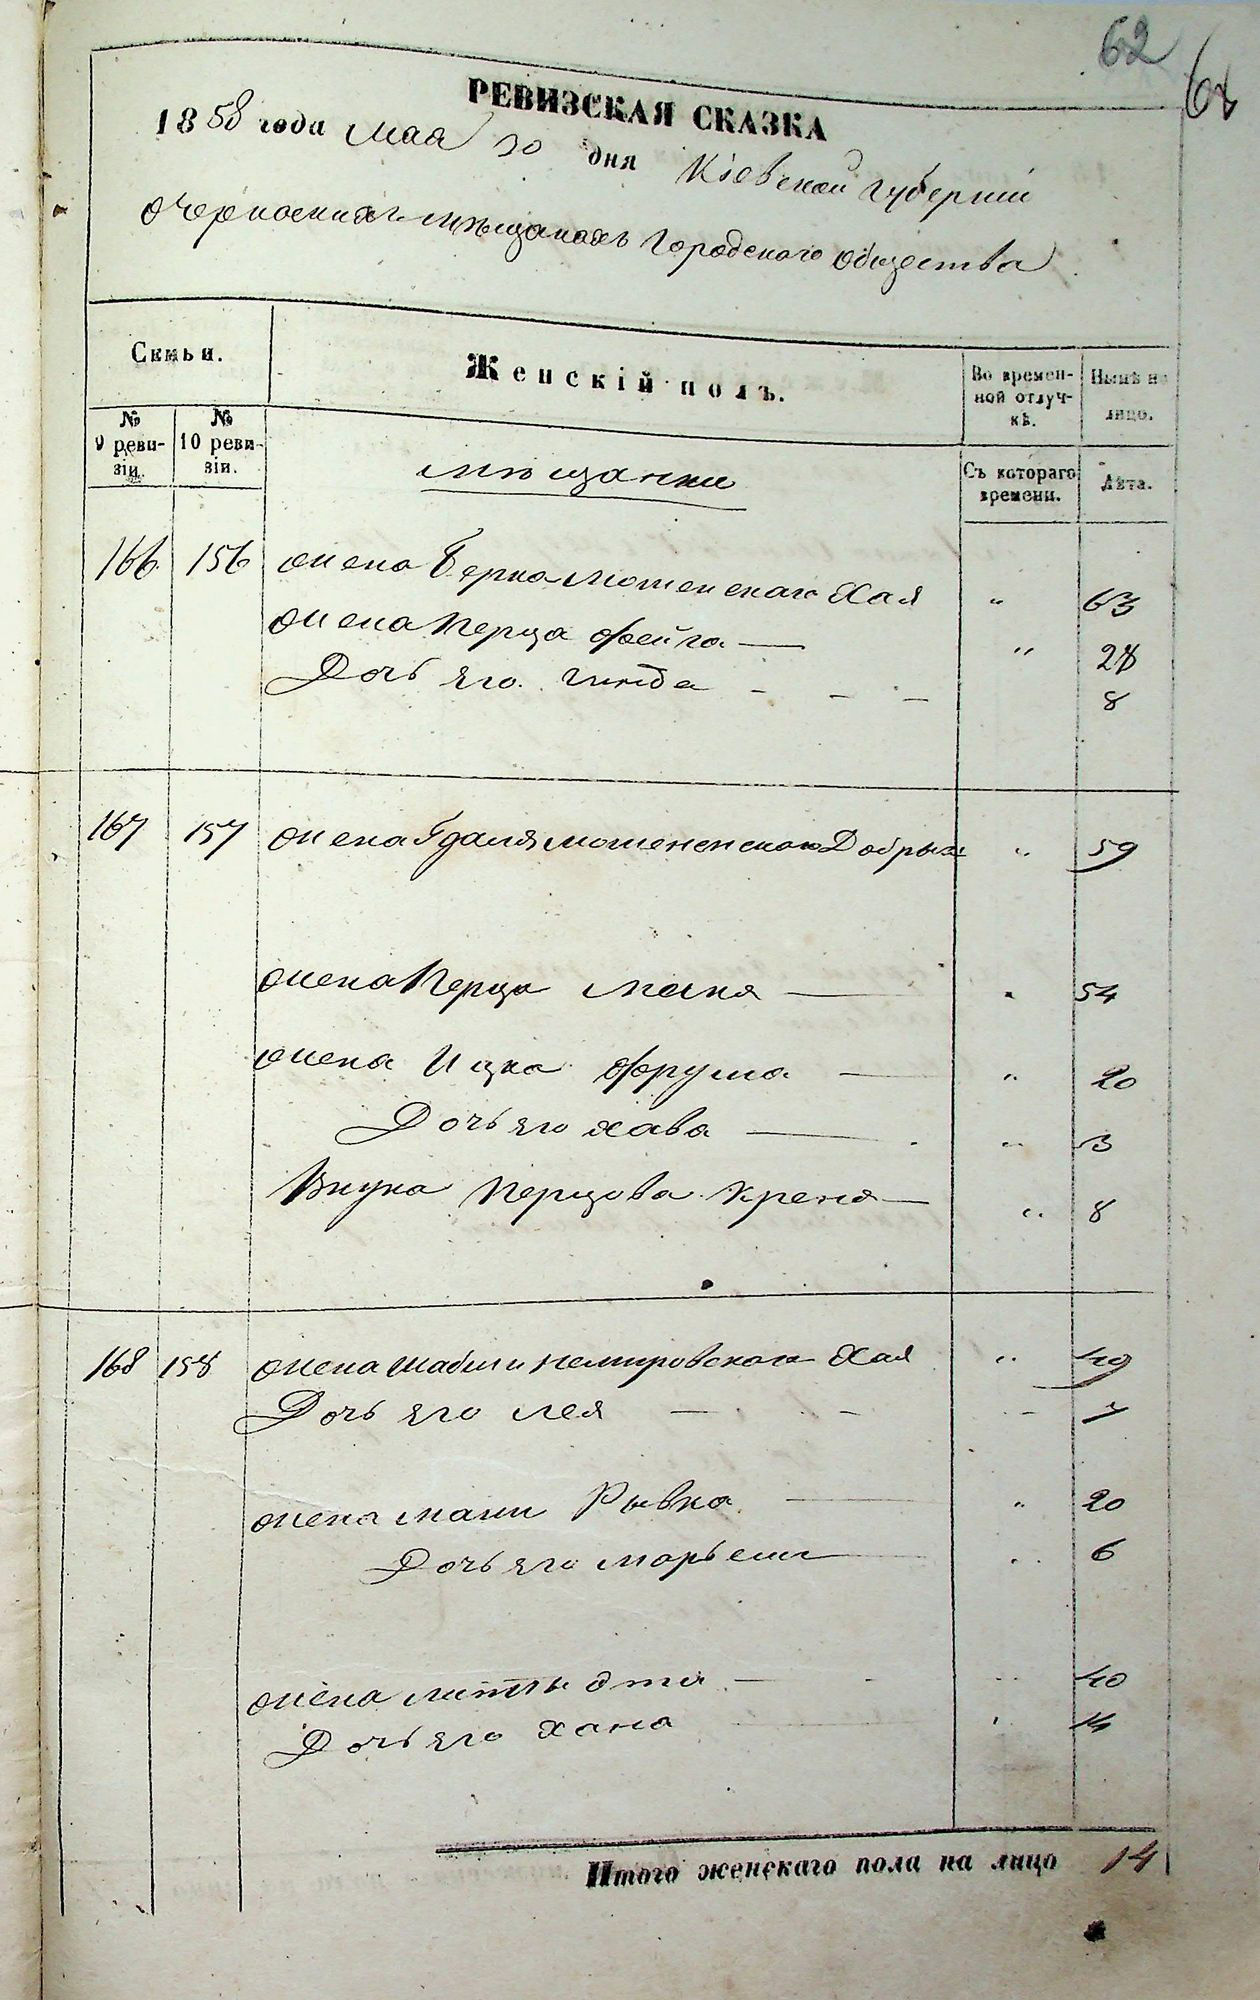 62
РЕВИЗСКАЯ СКАЗКА
1858 года мая 30 дня Кіевской губерніи
о черкаскихъ мѣщанахъ городскаго общества
Семьи.
Женскій полъ.
Во времен-
ной отлуч-
кѣ.
Нынѣ на
лицо.
№
9 реви-
зіи.
№
10 реви-
зіи.
мѣщанки
Съ котораго
времени.
Лѣта.
166 156 жена Берка Мошенскаго Хая " 63
жена Перца Фейга — " 28
Дочь его Гинда - - - 8
167 157 жена Гдаля Мошененскаго Добрыш " 59
жена Перца Маня — " 54
жена Ицка Фрума — " 20
Дочь его Хава — " 3
Внука Перцова Креня — " 8
168 158 жена Шабши Немировскаго Хая " 49
Дочь его Лея — - - 7
жена Мани Рывка — " 20
Дочь его Марьем — " 6
жена Эта — - " 40
Дочь его Хана " 14
Итого женскаго пола на лицо 14